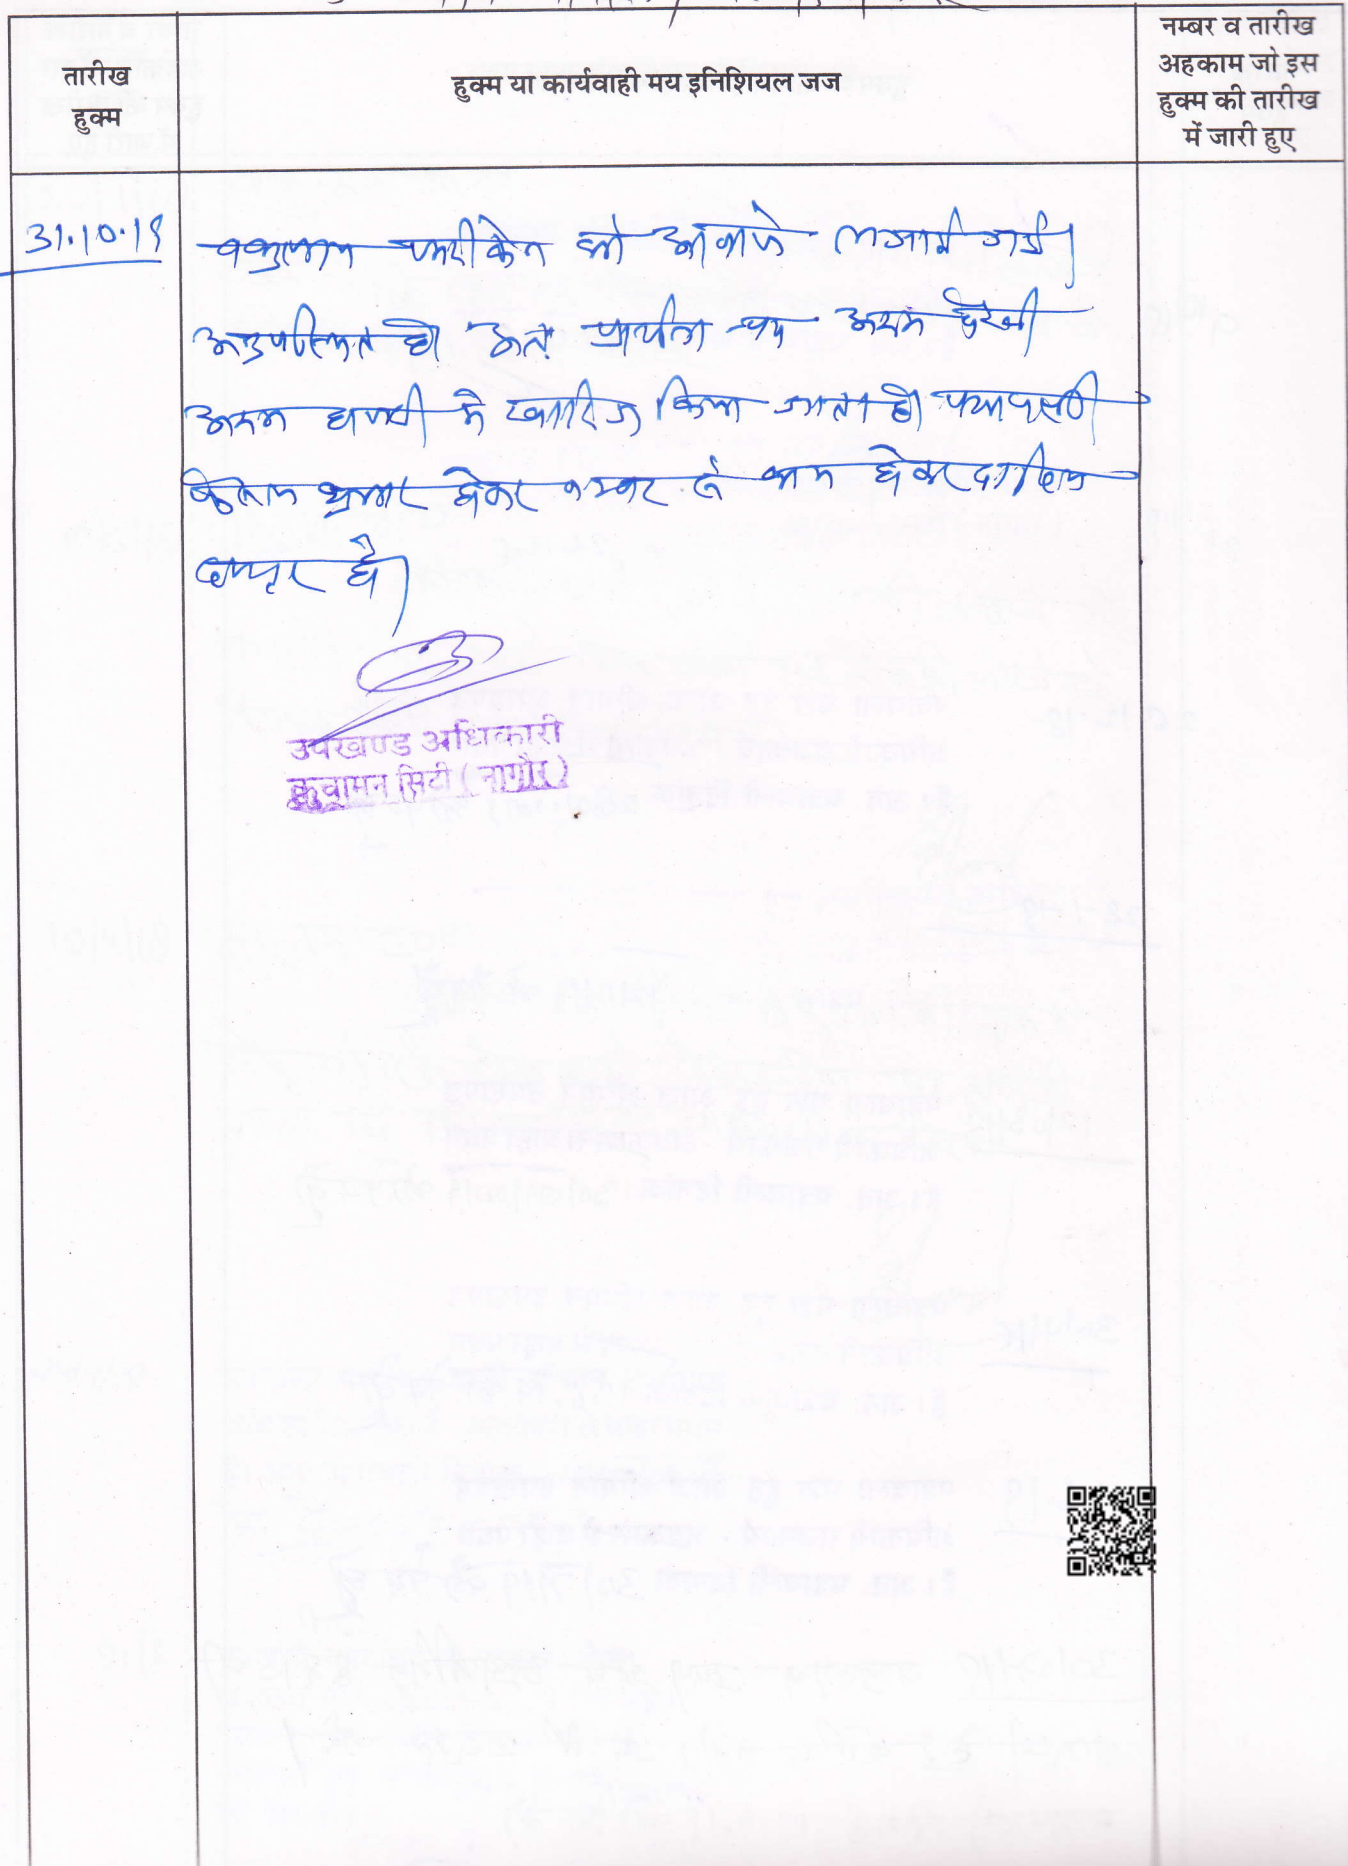 तारीख
हुक्म
हुक्म या कार्यवाही मय इनिशियल जज
नम्बर व तारीख
अहकाम जो इस
हुक्म की तारीख
में जारी हुए
31.10.19
वकुलाय फरीकेन को आवाजे लगवाई गई।
अनुपस्थित है। अतः प्रार्थना पत्र अदम हैरवी
अदम हाजरी में खारिज किया जाता है। पत्रावली
फैसल शुमार होकर नम्बर से कम होकर दाखिल
दफ्तर हो।
उपखण्ड अधिकारी
कुचामन सिटी (नागौर)